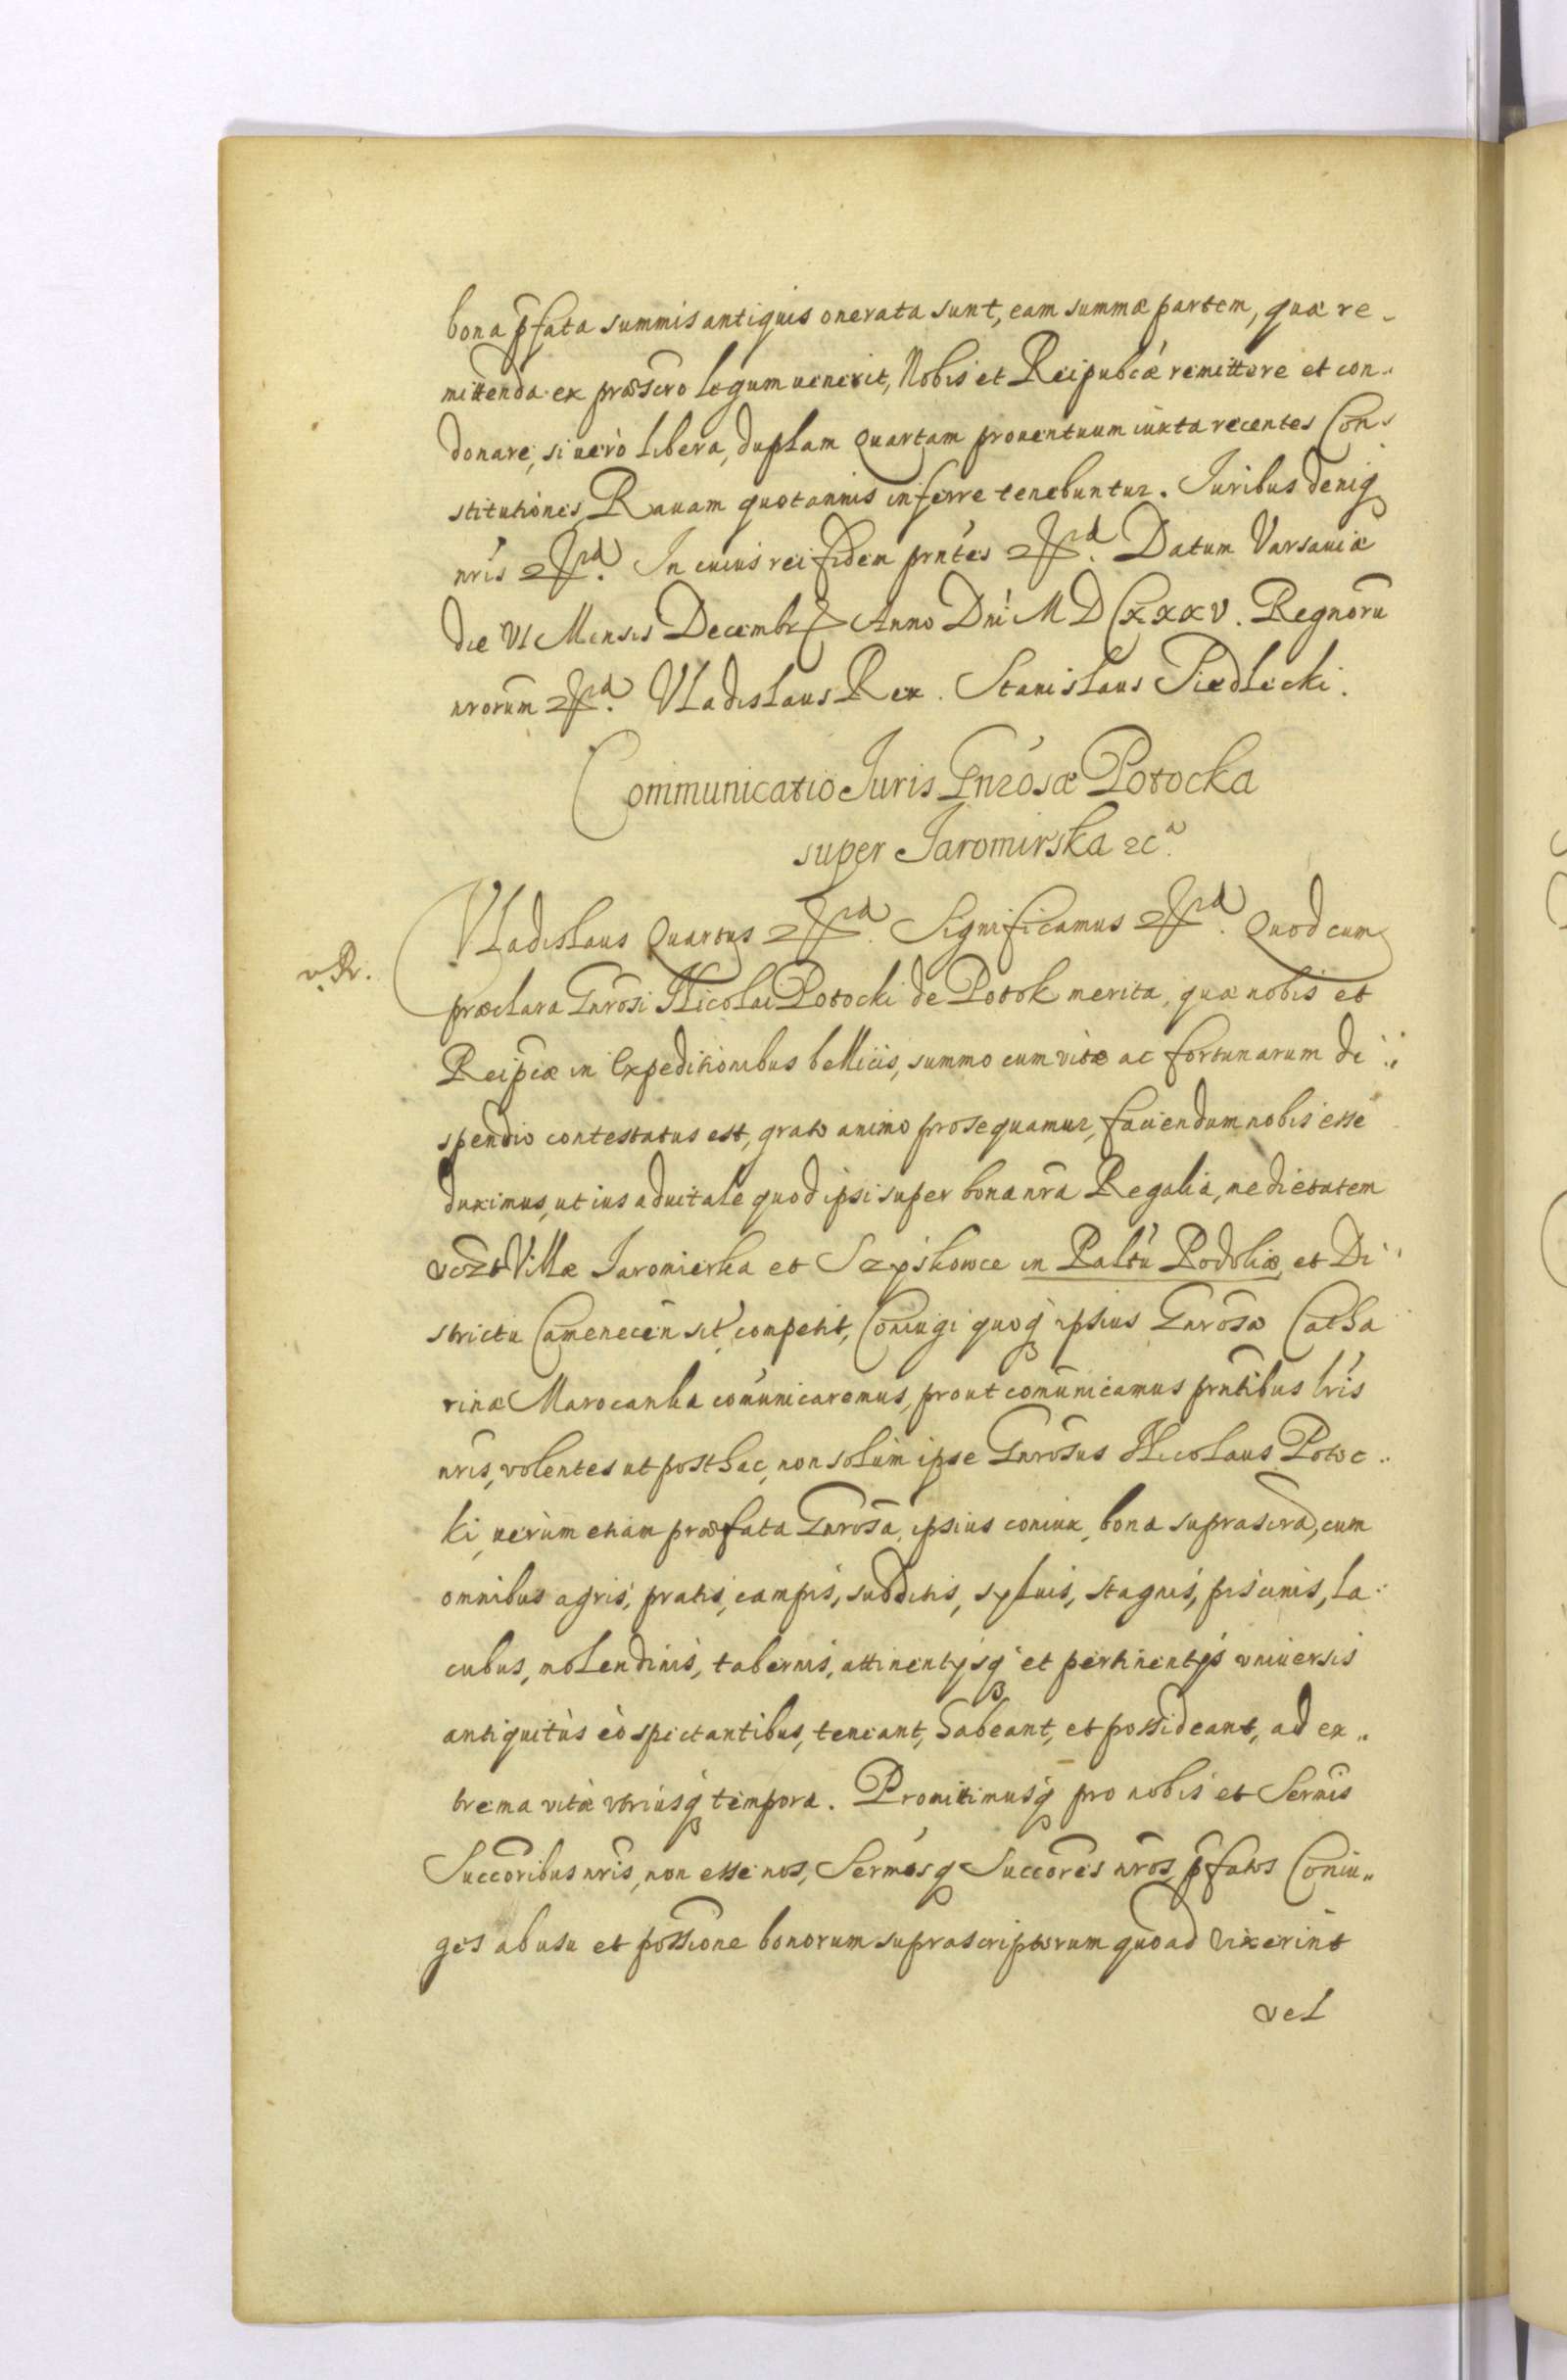 bona p̄fata summis antiquis onerata sunt, eam summæ partem, quæ re-
mittenda ex præscr̄o legum uenerit, Nobis et Reipubcæ remittere et con„
donare, si uerò libera, duplam quartam prouentuum iuxta recentes Con„
stitutiones Rauam quotannis inferre tenebuntur. Juribus deniq
nr̄is etc. In cuius rei fidem prn̄tes etc. Datum Varsauiæ
die VI Mensis Decembr Anno Dn̄i MDCXXXV. Regnorū
nrorum etc. Vladislaus Rex. Stanislaus Siedlecki.
Communicatio Juris Gnrosæ Potocka
super Jaromirska etc.
Vladislaus Quartus etc. Significamus etc. Quod cum
v. R.
præclara Gnrosi Nicolai Potocki de Potok merita, quæ nobis et
Reipcæ in Expeditionibus bellicis, summo cum vitæ ac fortunarum di„
spendio contestatus est, grato animo prosequamur, faciendum nobis esse
duximus, ut ius aduitale quod ipsi super bona nr̄a Regalia, medietatem
Villæ Jaromierka et Szyskowce in Paltū Podoliæ, et Di„
strictu Camenecen̄ sit, competit, Coniugi quoq ipsius Gnrosæ Catha
rinæ Marocanka com̄unicaremus, prout com̄unicamus prn̄tibus lr̄is
nr̄is, volentes ut posthac, non solum ipse Gnrosus Nicolaus Potoc„
ki, uerùm etiam præfata Gnrosa, ipsius coniux, bona suprascr̄a, cum
omnibus agris, pratis, campis, subditis, syluis, stagnis, piscinis, la„
cubus, molendinis, tabernis, attinentÿsq et pertinentÿs vniuersis
antiquitùs eò spectantibus, teneant, habeant, et possideant, ad ex„
trema vitæ vtriusq tempora. Promittimusq pro nobis et Serm̄is
Succoribus nr̄is, non esse nos, Serm̄osq Succores nr̄os, p̄fatos Coniu„
ges ab usu et possione bonorum suprascriptorum quoad vixerint
vel